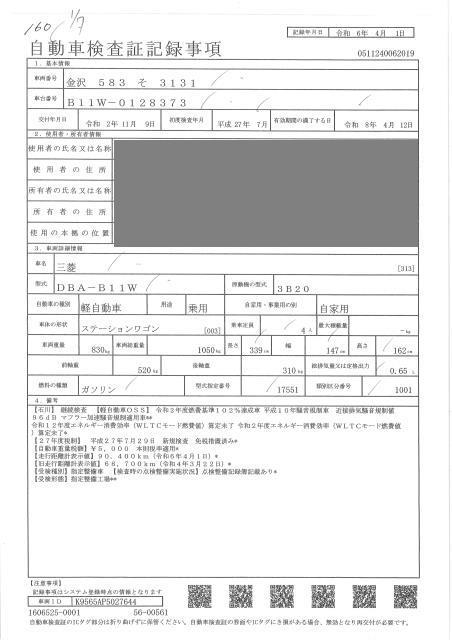 160 1/7
記録年月日 令和 6年 4月 1日
自動車検査証記録事項
0511240062019
1. 基本情報
車両番号 金沢 583 そ 3131
車台番号 B11W-0128373
交付年月日 令和 2年11月 9日 初度検査年月 平成 27年 7月 有効期間の満了する日 令和 8年 4月 12日
2. 使用者・所有者情報
使用者の氏名又は名称
使用者の住所
所有者の氏名又は名称
所有者の住所
使用の本拠の位置
3. 車両詳細情報
車名 三菱 [313]
型式 DBA-B11W 原動機の型式 3B20
自動車の種別 軽自動車 用途 乗用 自家用・事業用の別 自家用
車体の形状 ステーションワゴン [003] 乗車定員 4人 最大積載量 -kg
車両重量 830kg 車両総重量 1050kg 長さ 339cm 幅 147cm 高さ 162cm
前軸重 520kg 後軸重 310kg 総排気量又は定格出力 0.65 L
燃料の種類 ガソリン 型式指定番号 17551 類別区分番号 1001
4. 備考
【石川】 継続検査 【軽自動車OSS】 令和2年度燃費基準102%達成車 平成10年騒音規制車 近接排気騒音規制値
96dB マフラー加速騒音規制適用車**
令和12年度エネルギー消費効率(WLTCモード燃費値)算定未了 令和2年度エネルギー消費効率(WLTCモード燃費値
)算定未了*
【27年度税制】 平成27年7月29日 新規検査 免税措置済み**
【自動車重量税額】¥5,000 本則税率適用*
【走行距離計表示値】90,400km(令和6年4月1日)*
【旧走行距離計表示値】66,700km(令和4年3月22日)*
【受検種別】指定整備車 【検査時の点検整備実施状況】点検整備記録簿記載あり*
【受検形態】指定整備工場**
【注意事項】
記載事項はシステム登録時点の情報となります
車両ID K9565AP5027644
1606525-0001 56-00561
自動車検査証のICタグ部分は折り曲げずに保管ください。自動車検査証の券面やICタグにき損がある場合、無効となり再交付が必要です。